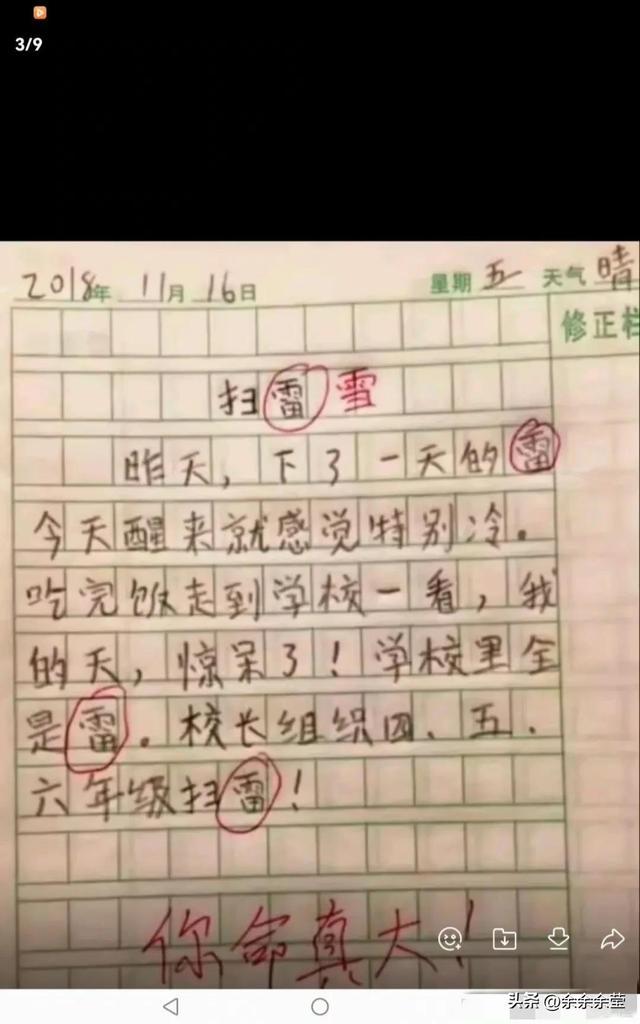 3/9
2018年 11月 16日 星期 五 天气 晴
修正栏
扫雷 雪
昨天，下了一天的雷
今天醒来就感觉特别冷。
吃完饭走到学校一看，我
的天，惊呆了！学校里全
是雷。校长组织四、五、
六年级扫雷！
你命真大！
头条 @余余余莹